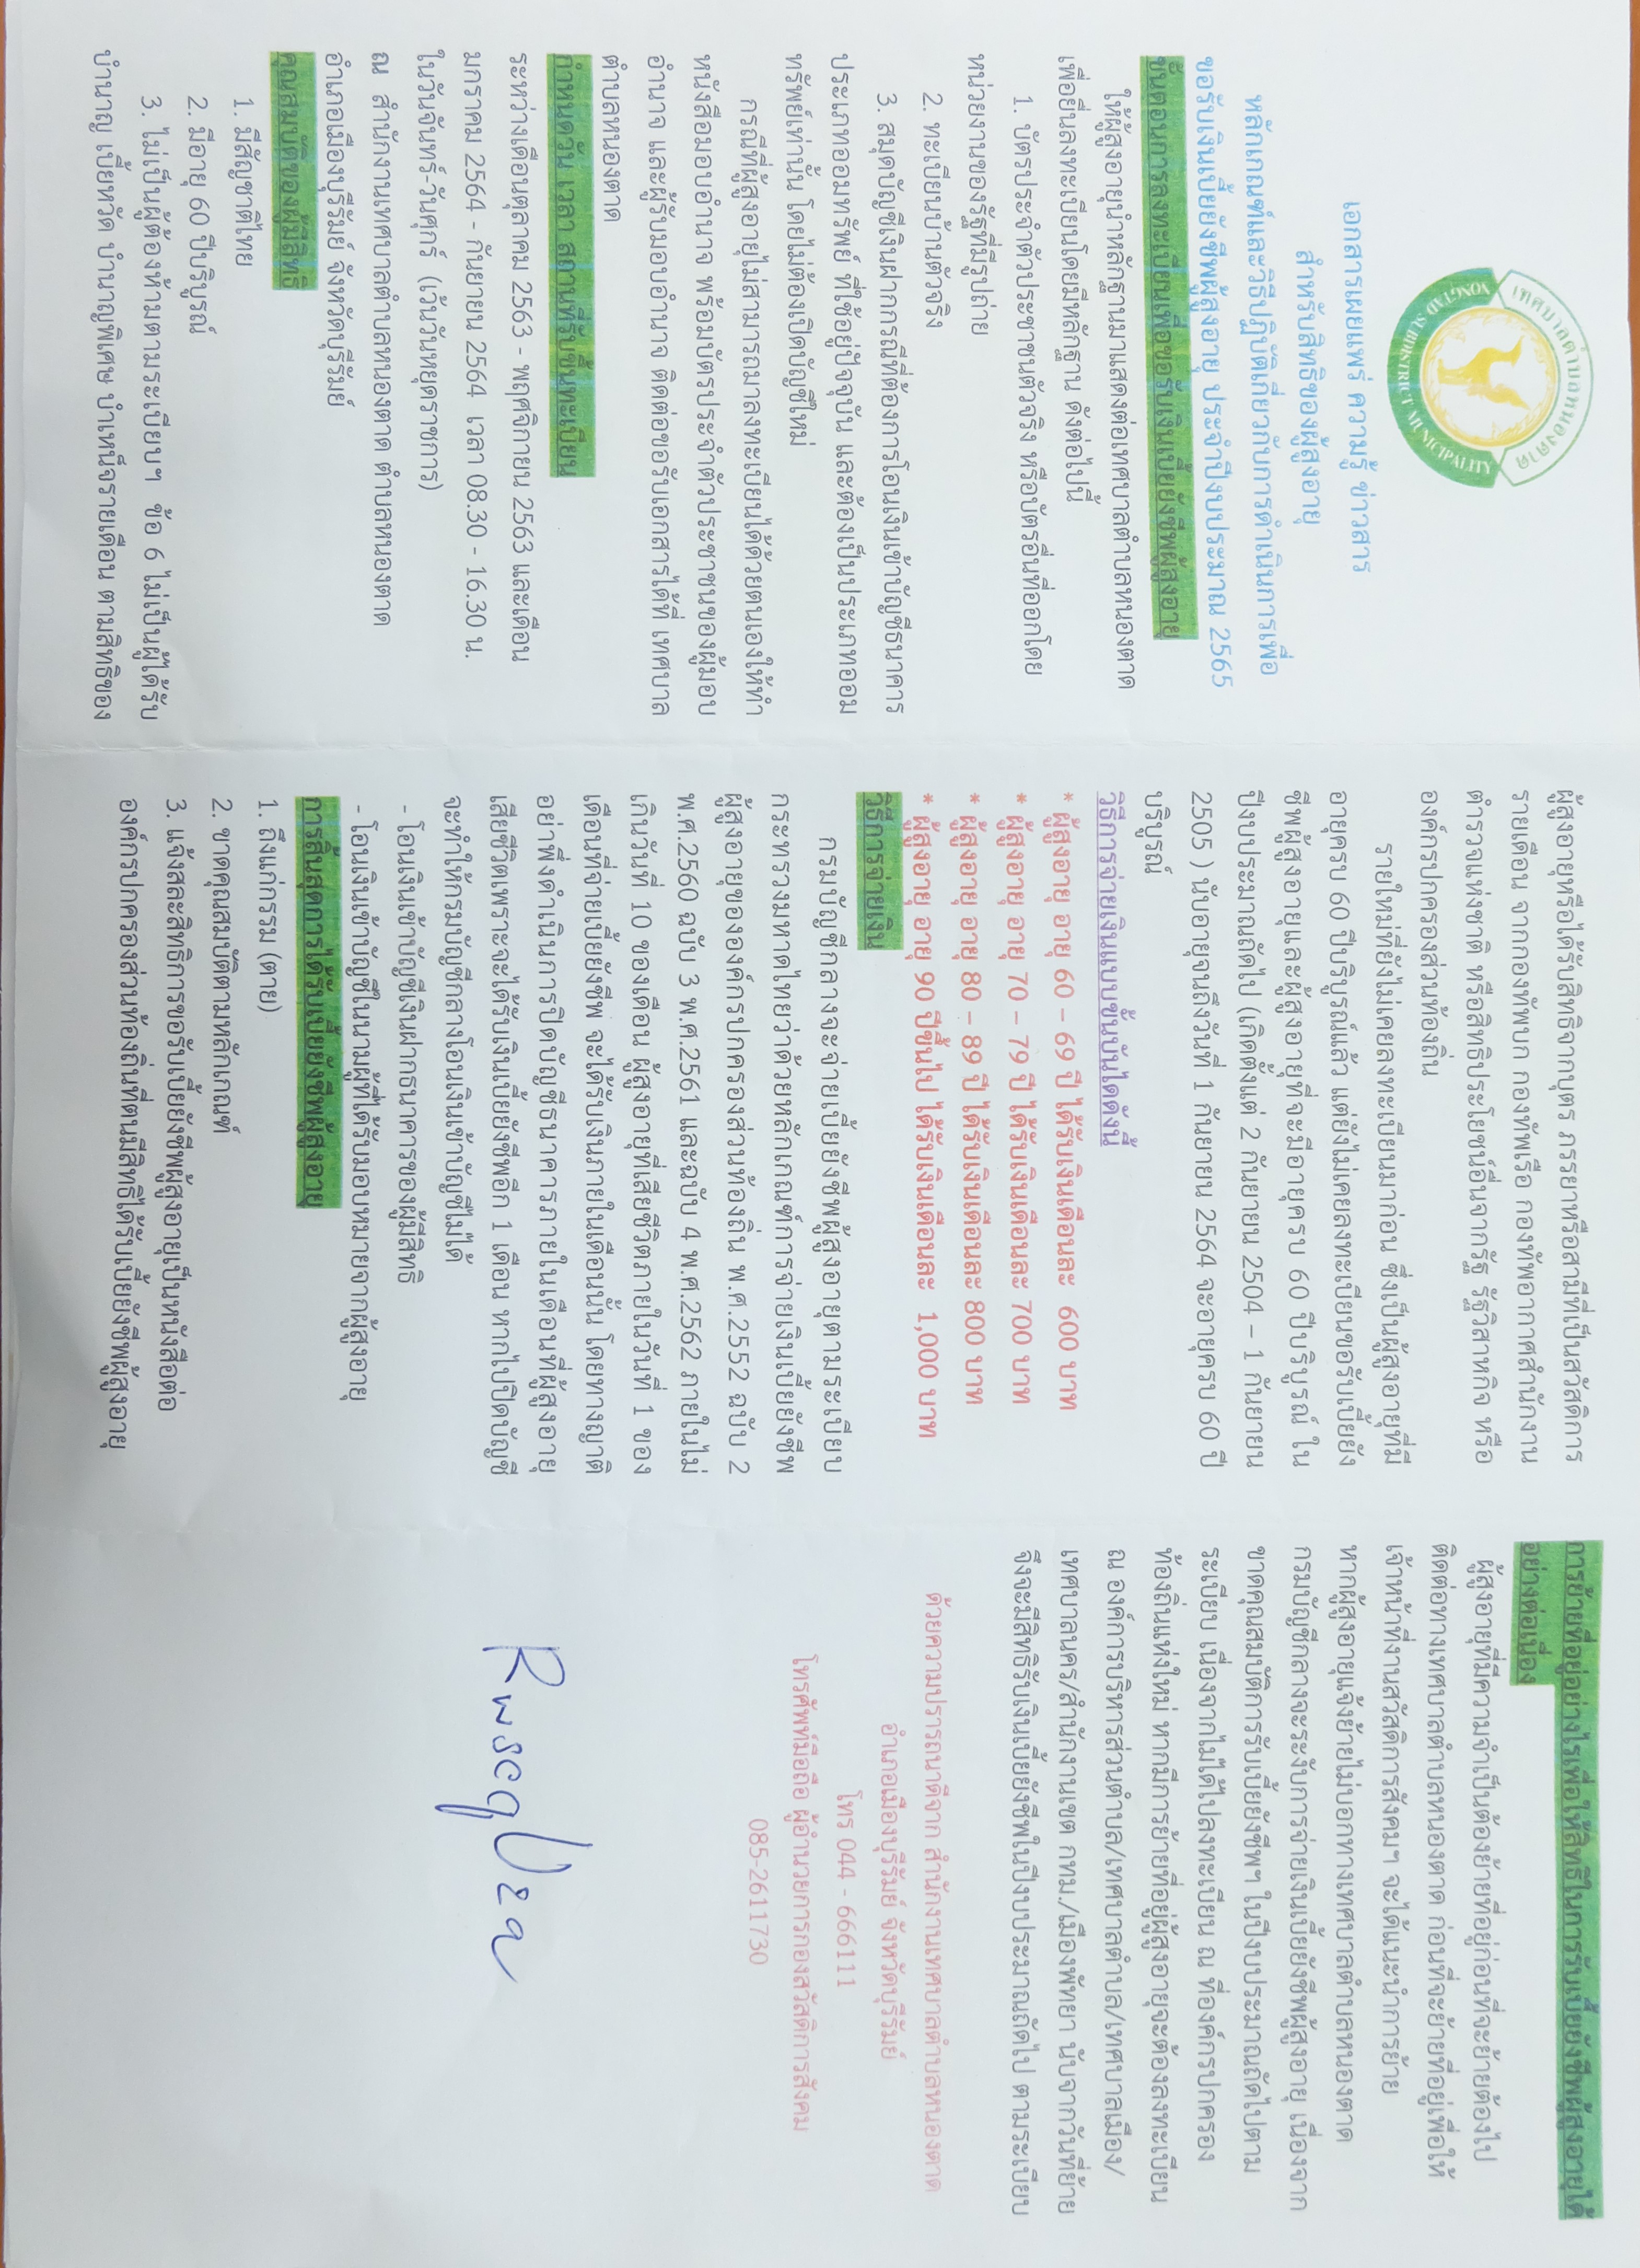 เทศบาลตำบลหนองตาด
NONGTAD SUBDISTRICT MUNICIPALITY
เอกสารเผยแพร่ ความรู้ ข่าวสาร
สำหรับสิทธิของผู้สูงอายุ
หลักเกณฑ์และวิธีปฏิบัติเกี่ยวกับการดำเนินการเพื่อ
ขอรับเงินเบี้ยยังชีพผู้สูงอายุ ประจำปีงบประมาณ 2565
ขั้นตอนการลงทะเบียนเพื่อขอรับเงินเบี้ยยังชีพผู้สูงอายุ
ให้ผู้สูงอายุนำหลักฐานมาแสดงต่อเทศบาลตำบลหนองตาด
เพื่อยื่นลงทะเบียนโดยมีหลักฐาน ดังต่อไปนี้
1. บัตรประจำตัวประชาชนตัวจริง หรือบัตรอื่นที่ออกโดย
หน่วยงานของรัฐที่มีรูปถ่าย
2. ทะเบียนบ้านตัวจริง
3. สมุดบัญชีเงินฝากกรณีที่ต้องการโอนเงินเข้าบัญชีธนาคาร
ประเภทออมทรัพย์ ที่ใช้อยู่ปัจจุบัน และต้องเป็นประเภทออม
ทรัพย์เท่านั้น โดยไม่ต้องเปิดบัญชีใหม่
กรณีที่ผู้สูงอายุไม่สามารถมาลงทะเบียนได้ด้วยตนเองให้ทำ
หนังสือมอบอำนาจ พร้อมบัตรประจำตัวประชาชนของผู้มอบ
อำนาจ และผู้รับมอบอำนาจ ติดต่อขอรับเอกสารได้ที่ เทศบาล
ตำบลหนองตาด
กำหนดวัน เวลา สถานที่รับขึ้นทะเบียน
ระหว่างเดือนตุลาคม 2563 - พฤศจิกายน 2563 และเดือน
มกราคม 2564 - กันยายน 2564 เวลา 08.30 - 16.30 น.
ในวันจันทร์-วันศุกร์ (เว้นวันหยุดราชการ)
ณ สำนักงานเทศบาลตำบลหนองตาด ตำบลหนองตาด
อำเภอเมืองบุรีรัมย์ จังหวัดบุรีรัมย์
คุณสมบัติของผู้มีสิทธิ
1. มีสัญชาติไทย
2. มีอายุ 60 ปีบริบูรณ์
3. ไม่เป็นผู้ต้องห้ามตามระเบียบฯ ข้อ 6 ไม่เป็นผู้ได้รับ
บำนาญ เบี้ยหวัด บำนาญพิเศษ บำเหน็จรายเดือน ตามสิทธิของ
ผู้สูงอายุหรือได้รับสิทธิจากบุตร ภรรยาหรือสามีที่เป็นสวัสดิการ
รายเดือน จากกองทัพบก กองทัพเรือ กองทัพอากาศสำนักงาน
ตำรวจแห่งชาติ หรือสิทธิประโยชน์อื่นจากรัฐ รัฐวิสาหกิจ หรือ
องค์กรปกครองส่วนท้องถิ่น
รายใหม่ที่ยังไม่เคยลงทะเบียนมาก่อน ซึ่งเป็นผู้สูงอายุที่มี
อายุครบ 60 ปีบริบูรณ์แล้ว แต่ยังไม่เคยลงทะเบียนขอรับเบี้ยยัง
ชีพผู้สูงอายุและผู้สูงอายุที่จะมีอายุครบ 60 ปีบริบูรณ์ ใน
ปีงบประมาณถัดไป (เกิดตั้งแต่ 2 กันยายน 2504 – 1 กันยายน
2505 ) นับอายุจนถึงวันที่ 1 กันยายน 2564 จะอายุครบ 60 ปี
บริบูรณ์
วิธีการจ่ายเงินแบบขั้นบันไดดังนี้
* ผู้สูงอายุ อายุ 60 – 69 ปี ได้รับเงินเดือนละ 600 บาท
* ผู้สูงอายุ อายุ 70 – 79 ปี ได้รับเงินเดือนละ 700 บาท
* ผู้สูงอายุ อายุ 80 – 89 ปี ได้รับเงินเดือนละ 800 บาท
* ผู้สูงอายุ อายุ 90 ปีขึ้นไป ได้รับเงินเดือนละ 1,000 บาท
วิธีการจ่ายเงิน
กรมบัญชีกลางจะจ่ายเบี้ยยังชีพผู้สูงอายุตามระเบียบ
กระทรวงมหาดไทยว่าด้วยหลักเกณฑ์การจ่ายเงินเบี้ยยังชีพ
ผู้สูงอายุขององค์กรปกครองส่วนท้องถิ่น พ.ศ.2552 ฉบับ 2
พ.ศ.2560 ฉบับ 3 พ.ศ.2561 และฉบับ 4 พ.ศ.2562 ภายในไม่
เกินวันที่ 10 ของเดือน ผู้สูงอายุที่เสียชีวิตภายในวันที่ 1 ของ
เดือนที่จ่ายเบี้ยยังชีพ จะได้รับเงินภายในเดือนนั้น โดยทางญาติ
อย่าพึ่งดำเนินการปิดบัญชีธนาคารภายในเดือนที่ผู้สูงอายุ
เสียชีวิตเพราะจะได้รับเงินเบี้ยยังชีพอีก 1 เดือน หากไปปิดบัญชี
จะทำให้กรมบัญชีกลางโอนเงินเข้าบัญชีไม่ได้
- โอนเงินเข้าบัญชีเงินฝากธนาคารของผู้มีสิทธิ
- โอนเงินเข้าบัญชีในนามผู้ที่ได้รับมอบหมายจากผู้สูงอายุ
การสิ้นสุดการได้รับเบี้ยยังชีพผู้สูงอายุ
1. ถึงแก่กรรม (ตาย)
2. ขาดคุณสมบัติตามหลักเกณฑ์
3. แจ้งสละสิทธิการขอรับเบี้ยยังชีพผู้สูงอายุเป็นหนังสือต่อ
องค์กรปกครองส่วนท้องถิ่นที่ตนมีสิทธิได้รับเบี้ยยังชีพผู้สูงอายุ
การย้ายที่อยู่อย่างไรเพื่อให้สิทธิในการรับเบี้ยยังชีพผู้สูงอายุได้
อย่างต่อเนื่อง
ผู้สูงอายุที่มีความจำเป็นต้องย้ายที่อยู่ก่อนที่จะย้ายต้องไป
ติดต่อทางเทศบาลตำบลหนองตาด ก่อนที่จะย้ายที่อยู่เพื่อให้
เจ้าหน้าที่งานสวัสดิการสังคมฯ จะได้แนะนำการย้าย
หากผู้สูงอายุแจ้งย้ายไม่บอกทางเทศบาลตำบลหนองตาด
กรมบัญชีกลางจะระงับการจ่ายเงินเบี้ยยังชีพผู้สูงอายุ เนื่องจาก
ขาดคุณสมบัติการรับเบี้ยยังชีพฯ ในปีงบประมาณถัดไปตาม
ระเบียบ เนื่องจากไม่ได้ไปลงทะเบียน ณ ที่องค์กรปกครอง
ท้องถิ่นแห่งใหม่ หากมีการย้ายที่อยู่ผู้สูงอายุจะต้องลงทะเบียน
ณ องค์การบริหารส่วนตำบล/เทศบาลตำบล/เทศบาลเมือง/
เทศบาลนคร/สำนักงานเขต กทม./เมืองพัทยา นับจากวันที่ย้าย
จึงจะมีสิทธิรับเงินเบี้ยยังชีพในปีงบประมาณถัดไป ตามระเบียบ
ด้วยความปรารถนาดีจาก สำนักงานเทศบาลตำบลหนองตาด
อำเภอเมืองบุรีรัมย์ จังหวัดบุรีรัมย์
โทร 044 - 666111
โทรศัพท์มือถือ ผู้อำนวยการกองสวัสดิการสังคม
085-2611730